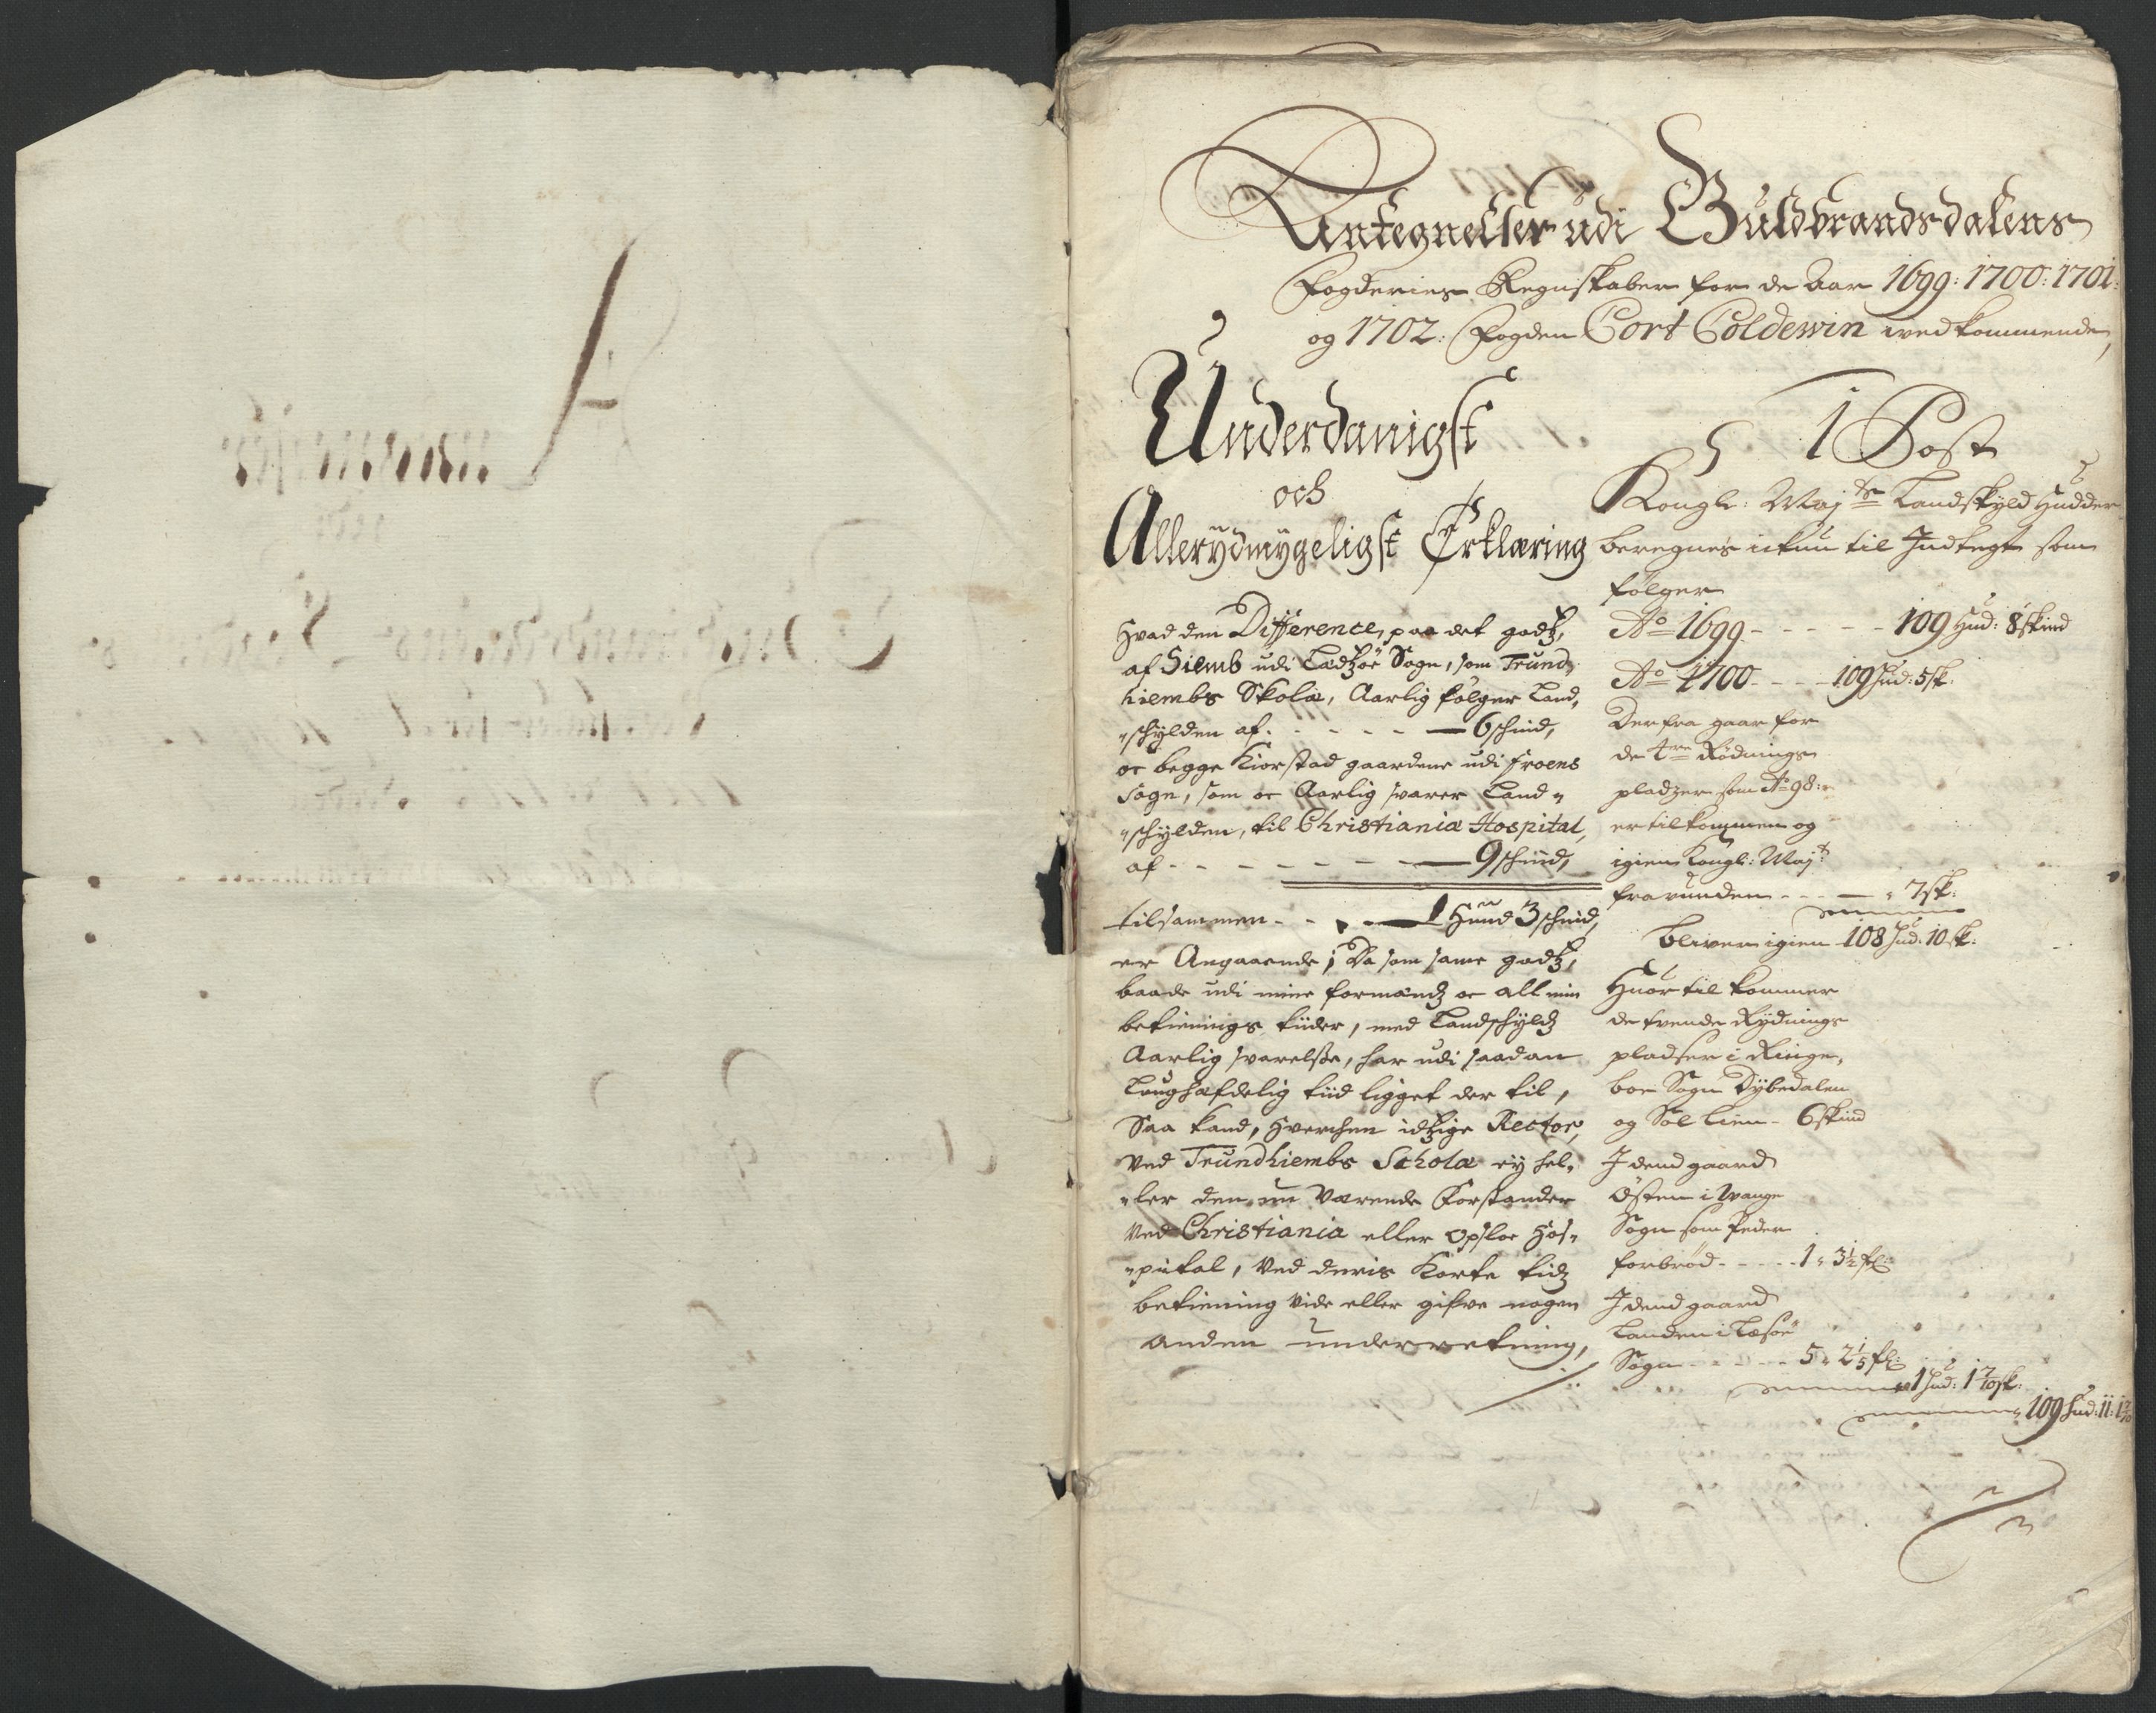 Antegnelser udi Guldbrandsdalens
Fogderies Regnskaber for de Aar 1699: 1700: 1701:
og 1702: Fogden Cort Coldewin wedkommende,
Underdanigst
och
Allerydmygeligst Erklæring
Hvad den Difference, paa det godtz,
af Siemb udi Ladtzöe Sogn, som Trund,,
hiembs Skola, Aarlig følger Land,,
,,schylden af - - - - - 6 schind,
oc begge Kiorstad gaardene udi froens
Sogn, som oc Aarlig svarer Land,,
,,schylden, til Christiania Hospital,
af - - - - - - - 9 schind,
tilsammen - - - - 1 Hund 3 schind,
er Angaaende; Da som same godtz,
baade udi mine formændz oc all min
betienings tiider, med Landschyldz
Aarlig svarelse, har udi saadan
Laughæfdelig tiid ligget der til,
Saa kand, hverchen idtzige Rector,
ved Trundhiembs Schola ey hel,,
,,ler den nu værende Forstander
ved Christiania eller Opsloe Hos,,
,,pital, ved deris Korte tidz
betiening vide eller gifve nogen
anden underretning,
1 Post
Kongl: Maj:ts Landskyld Hudder
beregnes ickun til Indtegt som
følger
Ao 1699 - - - - - 109 Hud: 8 skind
Ao 1700 - - - - 109 Hud: 5 sk:
Derfra gaar for
de tre Rödnings
pladzer som Ao 98:
er tilkommen og
igien Kongl: Maj:t
fravunden - - - 7 sk:
bliver igien 108 Hud: 10 sk:
Huortil kommer
de tvende Rydnings
pladser i Ringe,
boe Sogn Dybedalen
og Sollien - 6 skind
I dend gaard
Östen i Wange
Sogn som Peder
forbrød - - - - 1 " 3 1/2 sk:
I dend gaard
Landen i Læsöe
Sogn - - - - - 5 " 2 1/5 sk:
1 Hud: 1 7/10 sk:
109 Hud: 11: 1 7/10